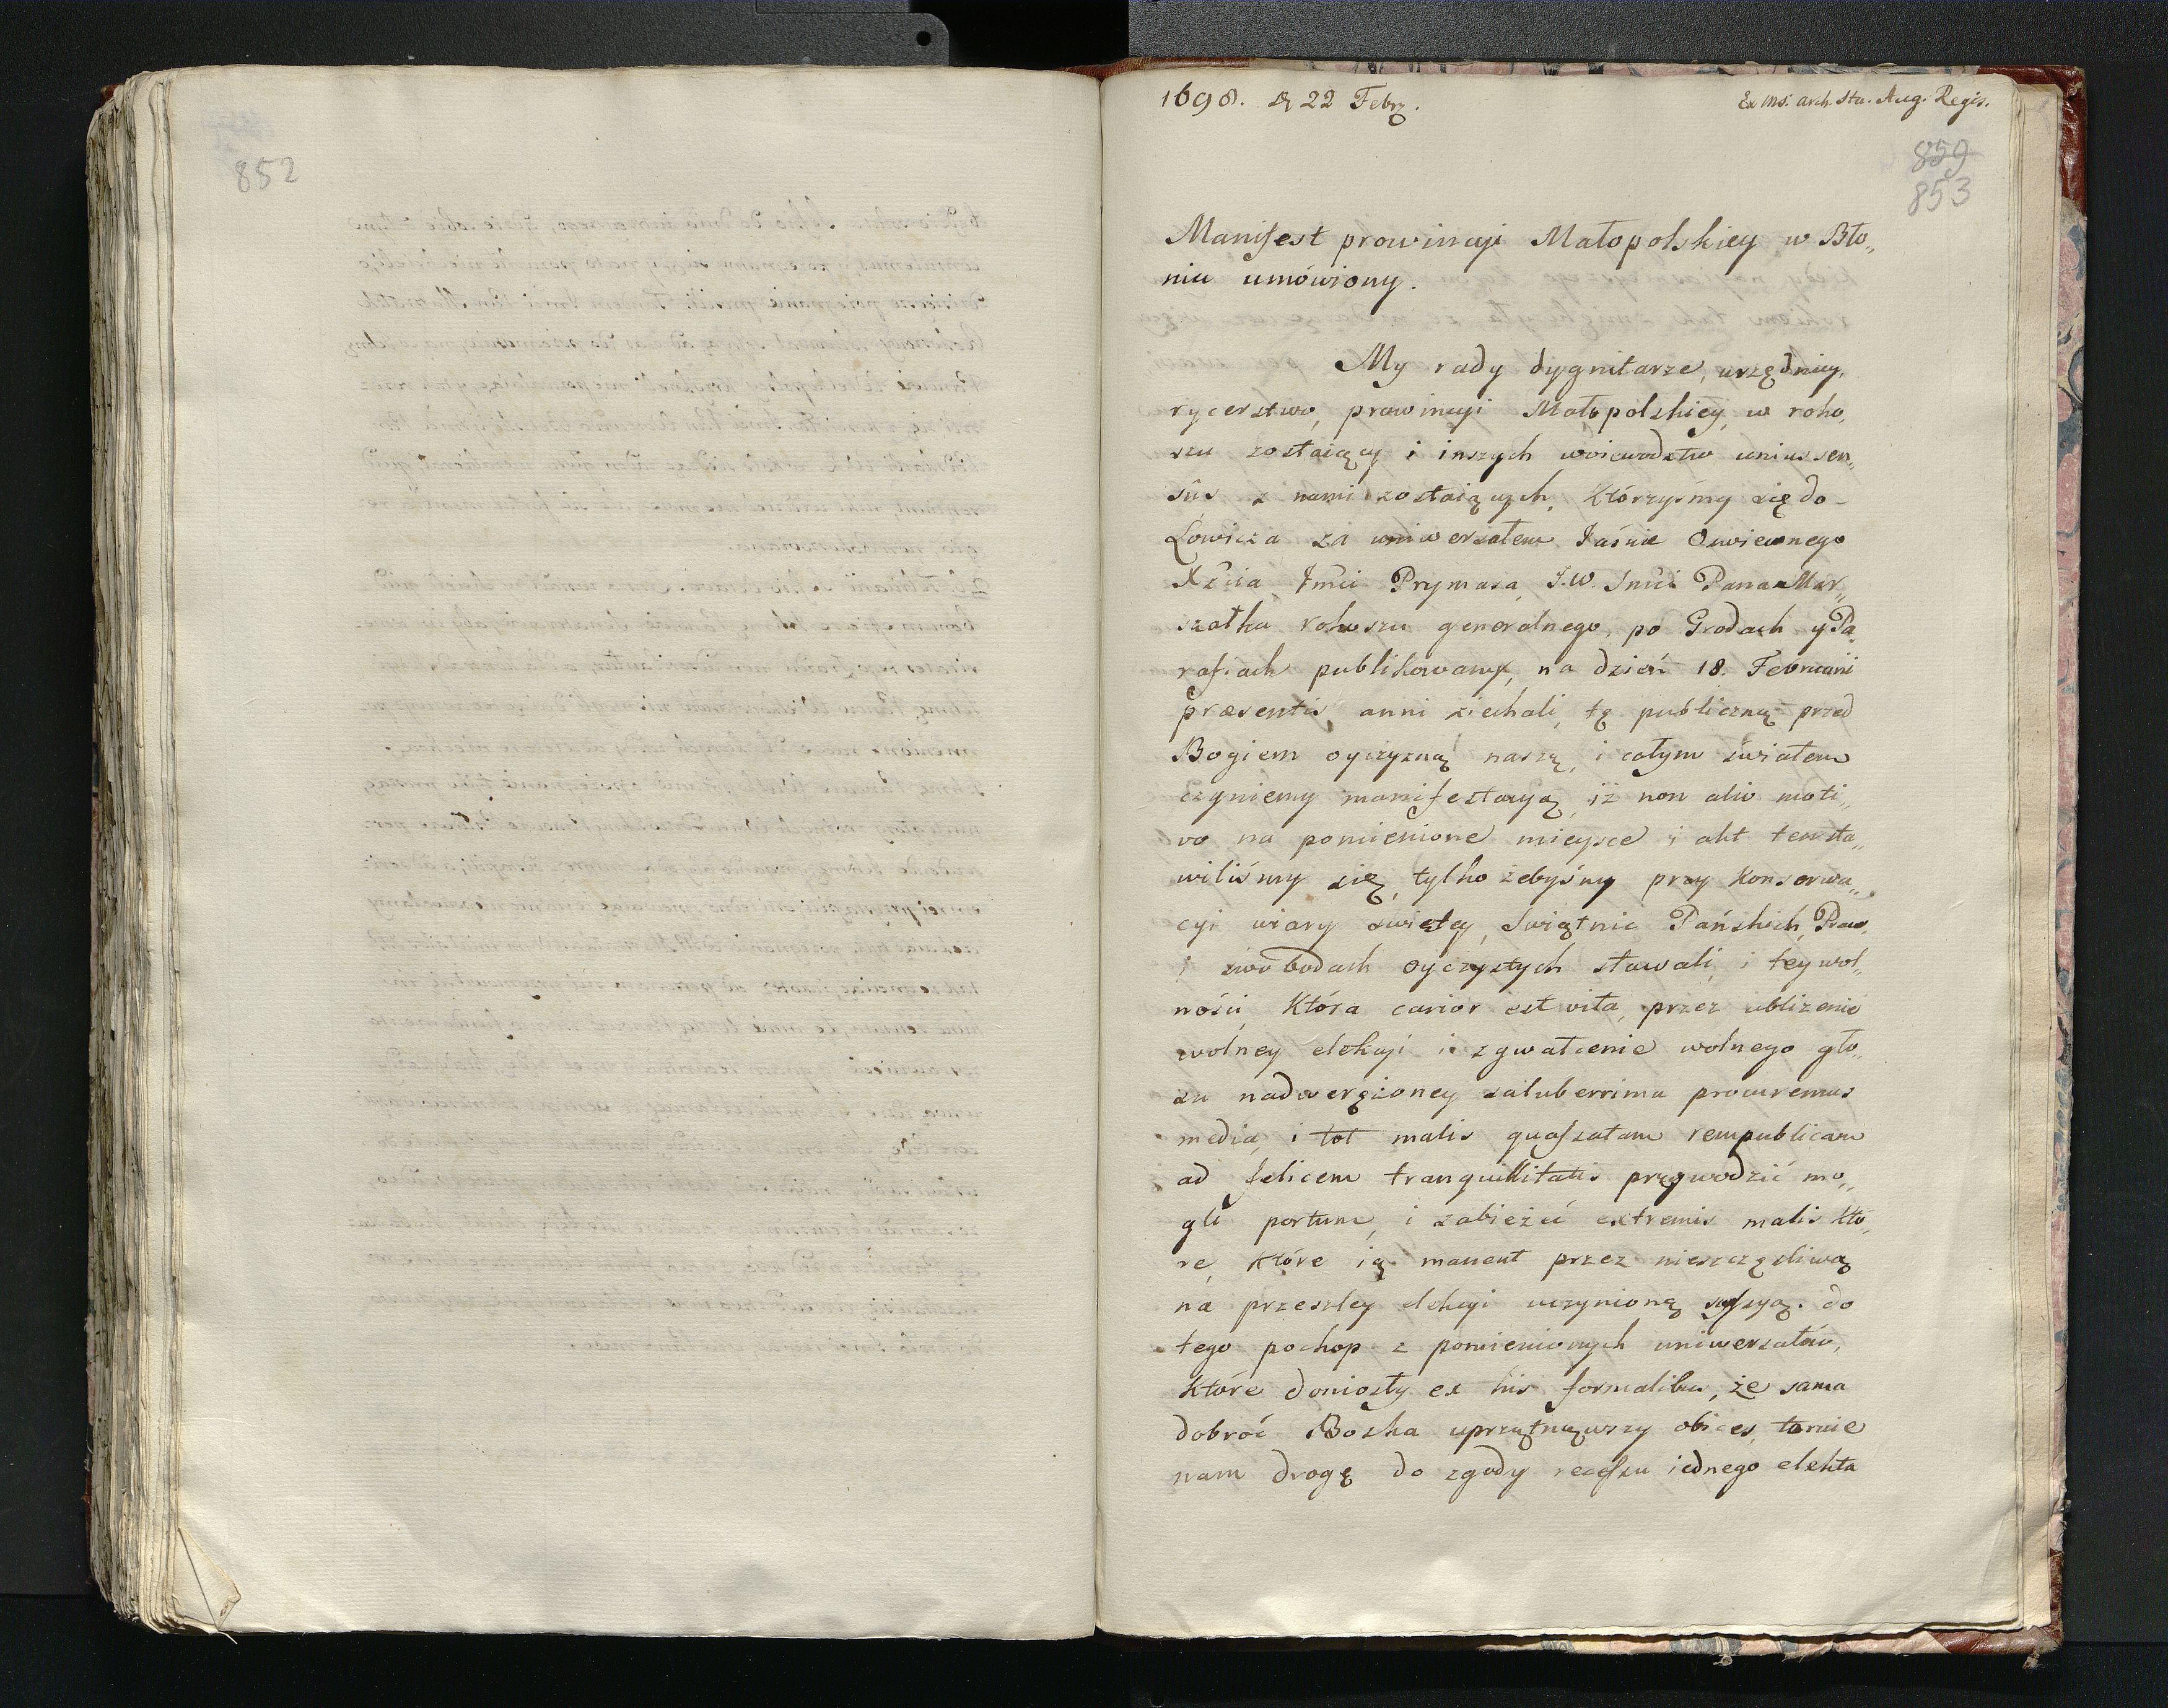 852
1698. d 22 Febr.
Ex Ms. arch. Sta. Aug. Regis.
859
853
Manifest prowincyi Małopolskiey w Bło„
niu umówiony.
My rady dygnitarze, urzędnicy,
rycerstwo, prowincyi Małopolskiey, w roko„
szu zostaiący i inszych woiewodztw unius sen„
sûs z nami zostaiących, którzyśmy się do
Łowicza za uniwersałem Jaśnie Oswieconego
Xcia Jmci Prymasa, J.W. Jmci Pana Mar„
szałka rokoszu generalnego, po Grodach y Pa„
rafiach publikowany, na dzień 18. Februarii
præsentis anni ziechali, tę publiczną przed
Bogiem oyczyzną naszą, i całym światem
czyniemy manifestacyą, iż non alio moti„
vo na pomienione mieysce i akt ten sta„
wiliśmy się, tylko żebyśmy przy konserwa„
cyi wiary swiętey, Swiątnic Pańskich, Praw
i swobodach oyczystych stawali, i tey wol„
ności, która carior est vita, przez ubliżenie
wolney elekcyi i zgwałcenie wolnego gło„
su nadwerężoney saluberrima procuremus
media, i tot malis quassatam rempublicam
ad felicem tranquillitatis przywodzić mo„
gli portum, i zabieżeć extremis malis któ„
re, które ią manent przez nieszczęsliwą
na przeszłey elekcyi uczynioną scyssyą. do
tego pochop z pomienionych uniwersałów,
które doniosły ex his formalibus, że sama
dobroć Boska uprzątnąwszy obices, toruie
nam drogę do zgody recessu iednego elekta